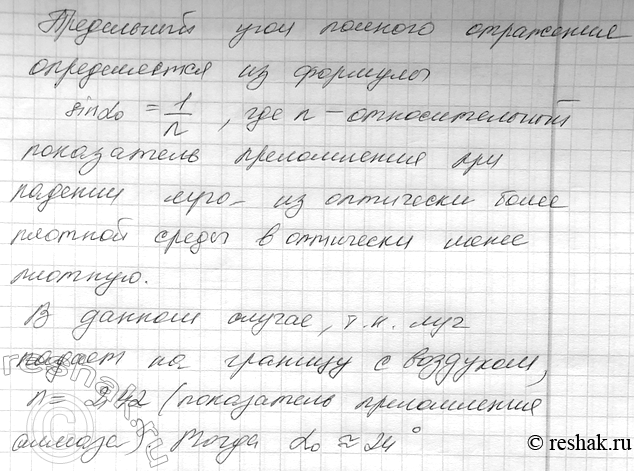 Предельный угол полного отражения
определяется из формулы
sinα₀ = 1/n , где n – относительный
показатель преломления при
падении луча из оптически более
плотной среды в оптически менее
плотную.
В данном случае, т.к. луч
падает на границу с воздухом,
n = 2,42 (показатель преломления
алмаза). Тогда α₀ ≈ 24°
reshak.ru
© reshak.ru